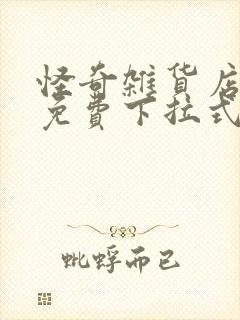 怪奇雑貨店
免費下拉式
蚍蜉而已